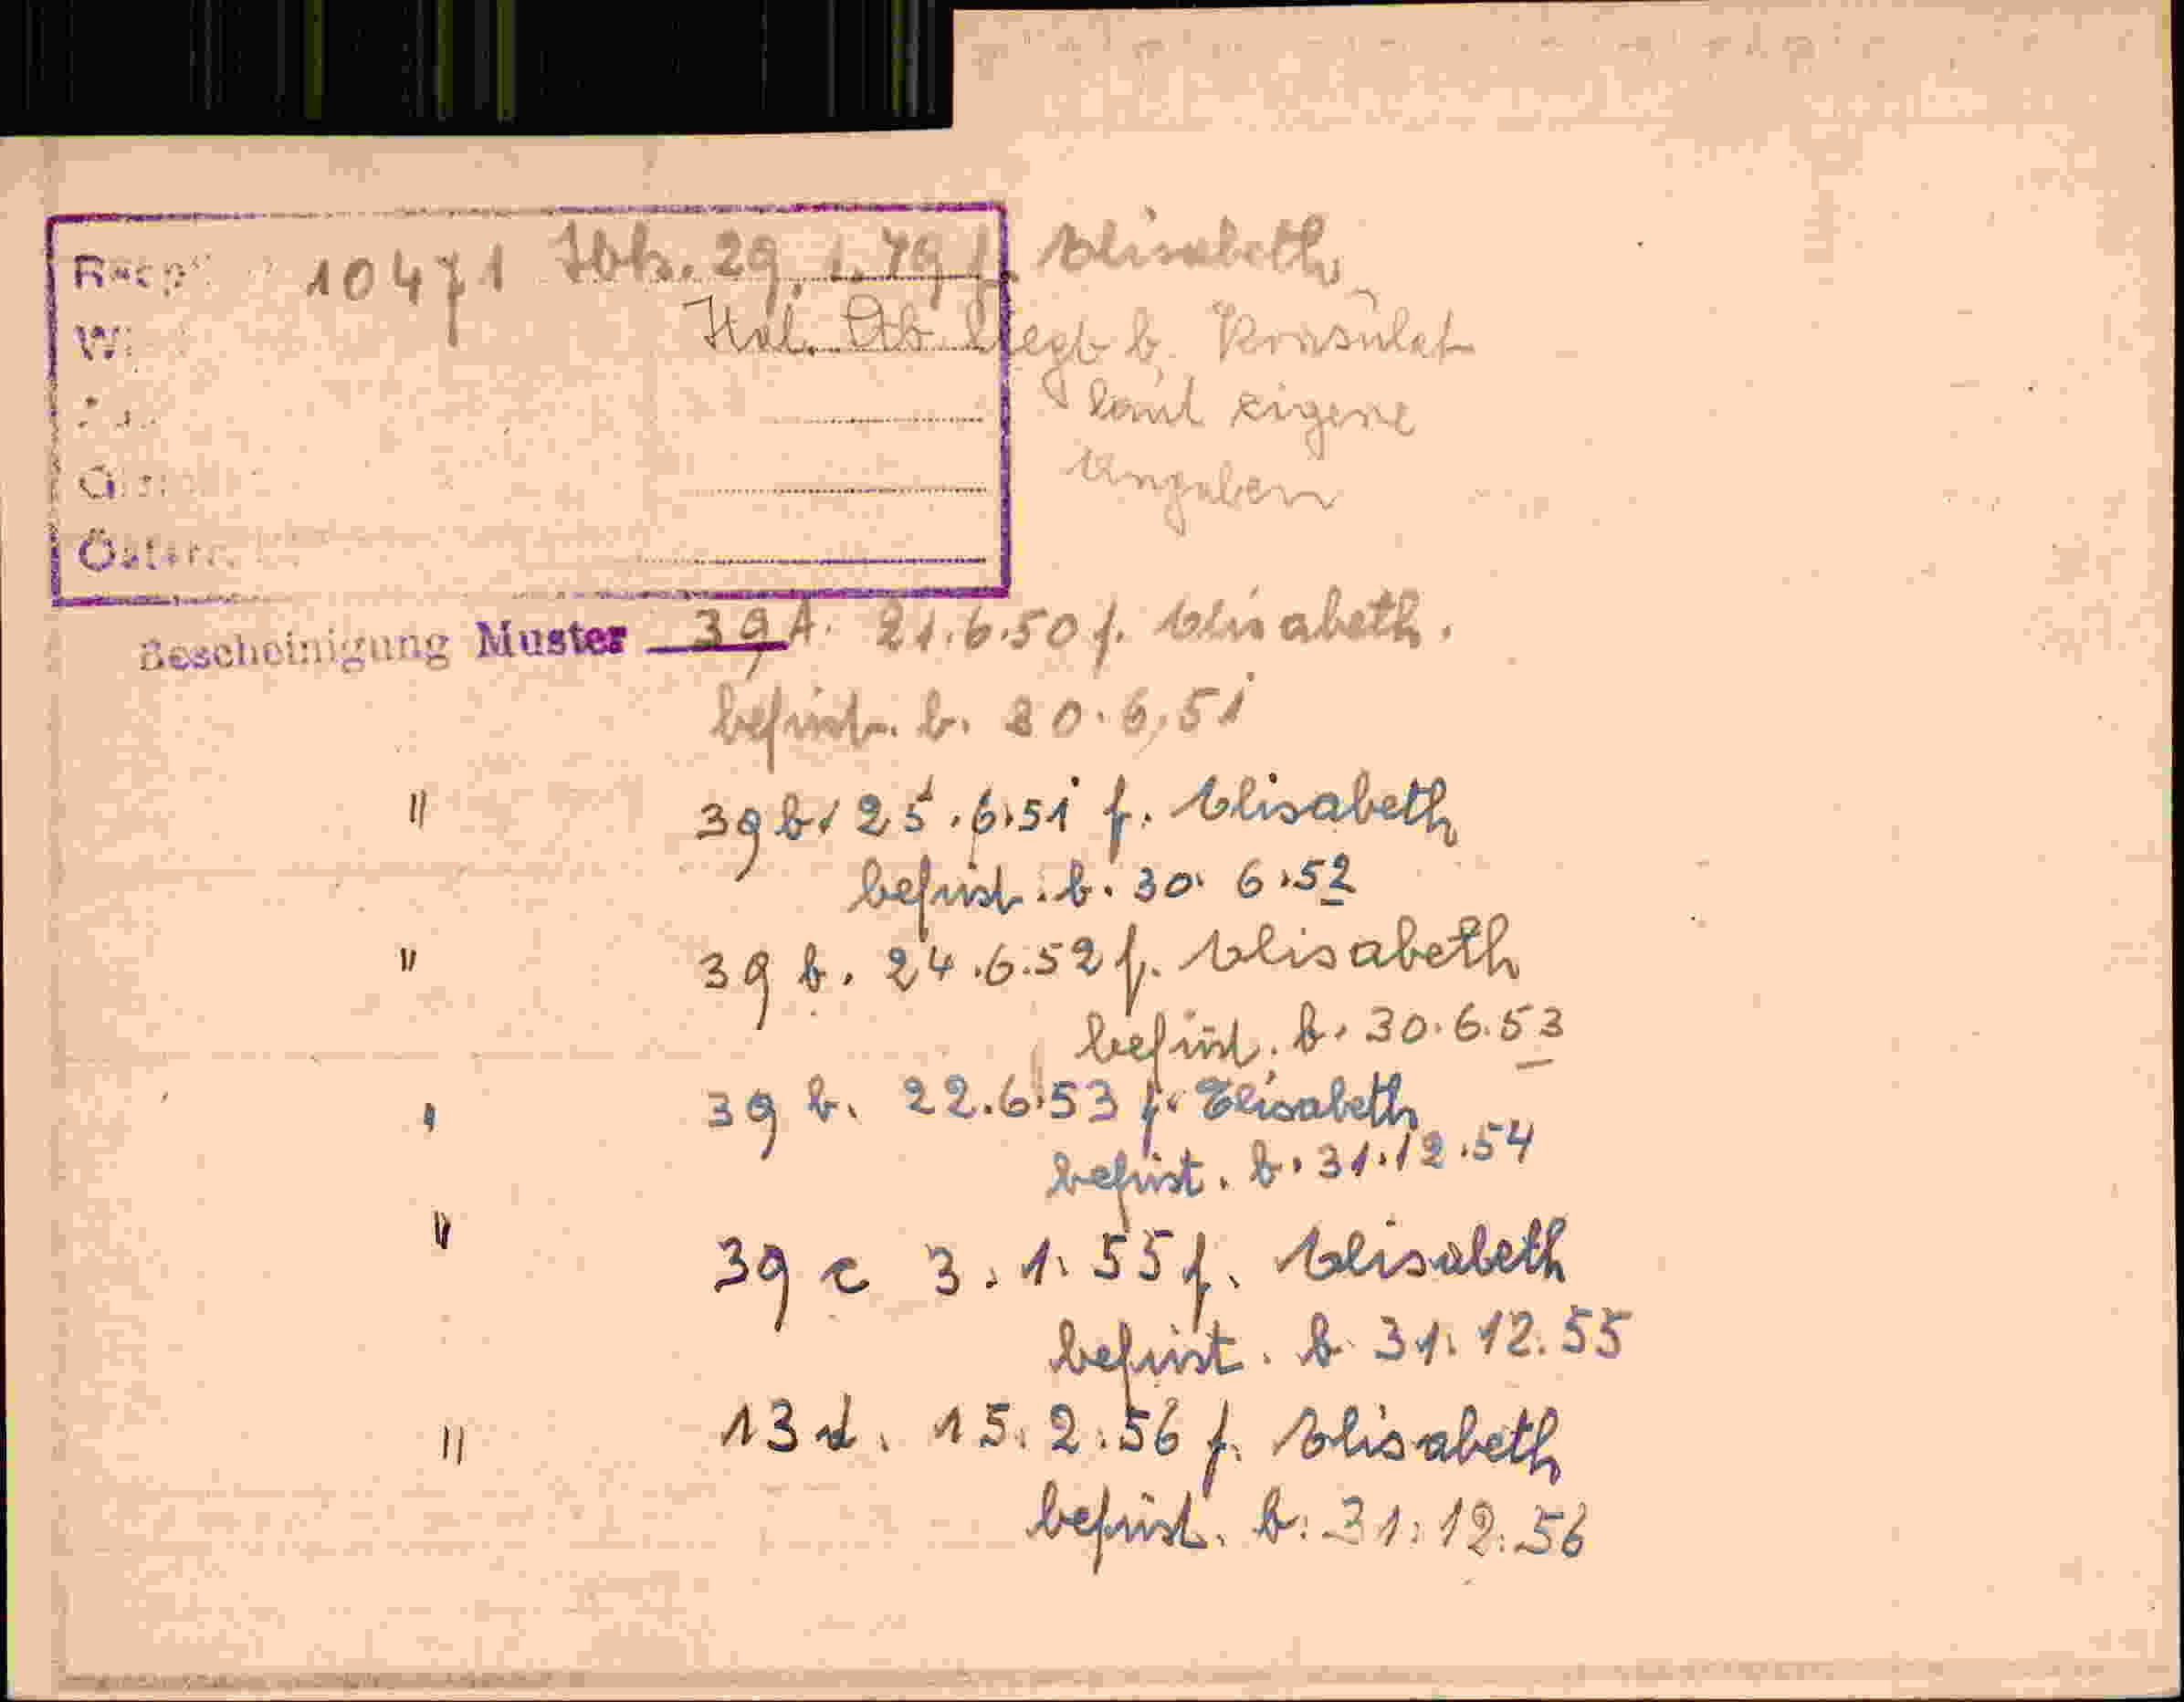 10471 Ibk. 29. 1. 79 f. Elisabeth
liegt b. Konsulat
laut eigene
Angaben
Bescheinigung Muster 39 A. 21.6.50 f. Elisabeth.
befrist. b. 20.6.51
" 39 b. 25.6.51 f. Elisabeth
befrist. b. 30.6.52
" 39 b. 24.6.52 f. Elisabeth
befrist. b. 30.6.53
" 39 b. 22.6.53 f. Elisabeth
befrist. b. 31.12.54
" 39 c 3.1.55 f. Elisabeth
befrist. b. 31.12.55
" 13 d. 15.2.56 f. Elisabeth
befrist. b. 31.12.56